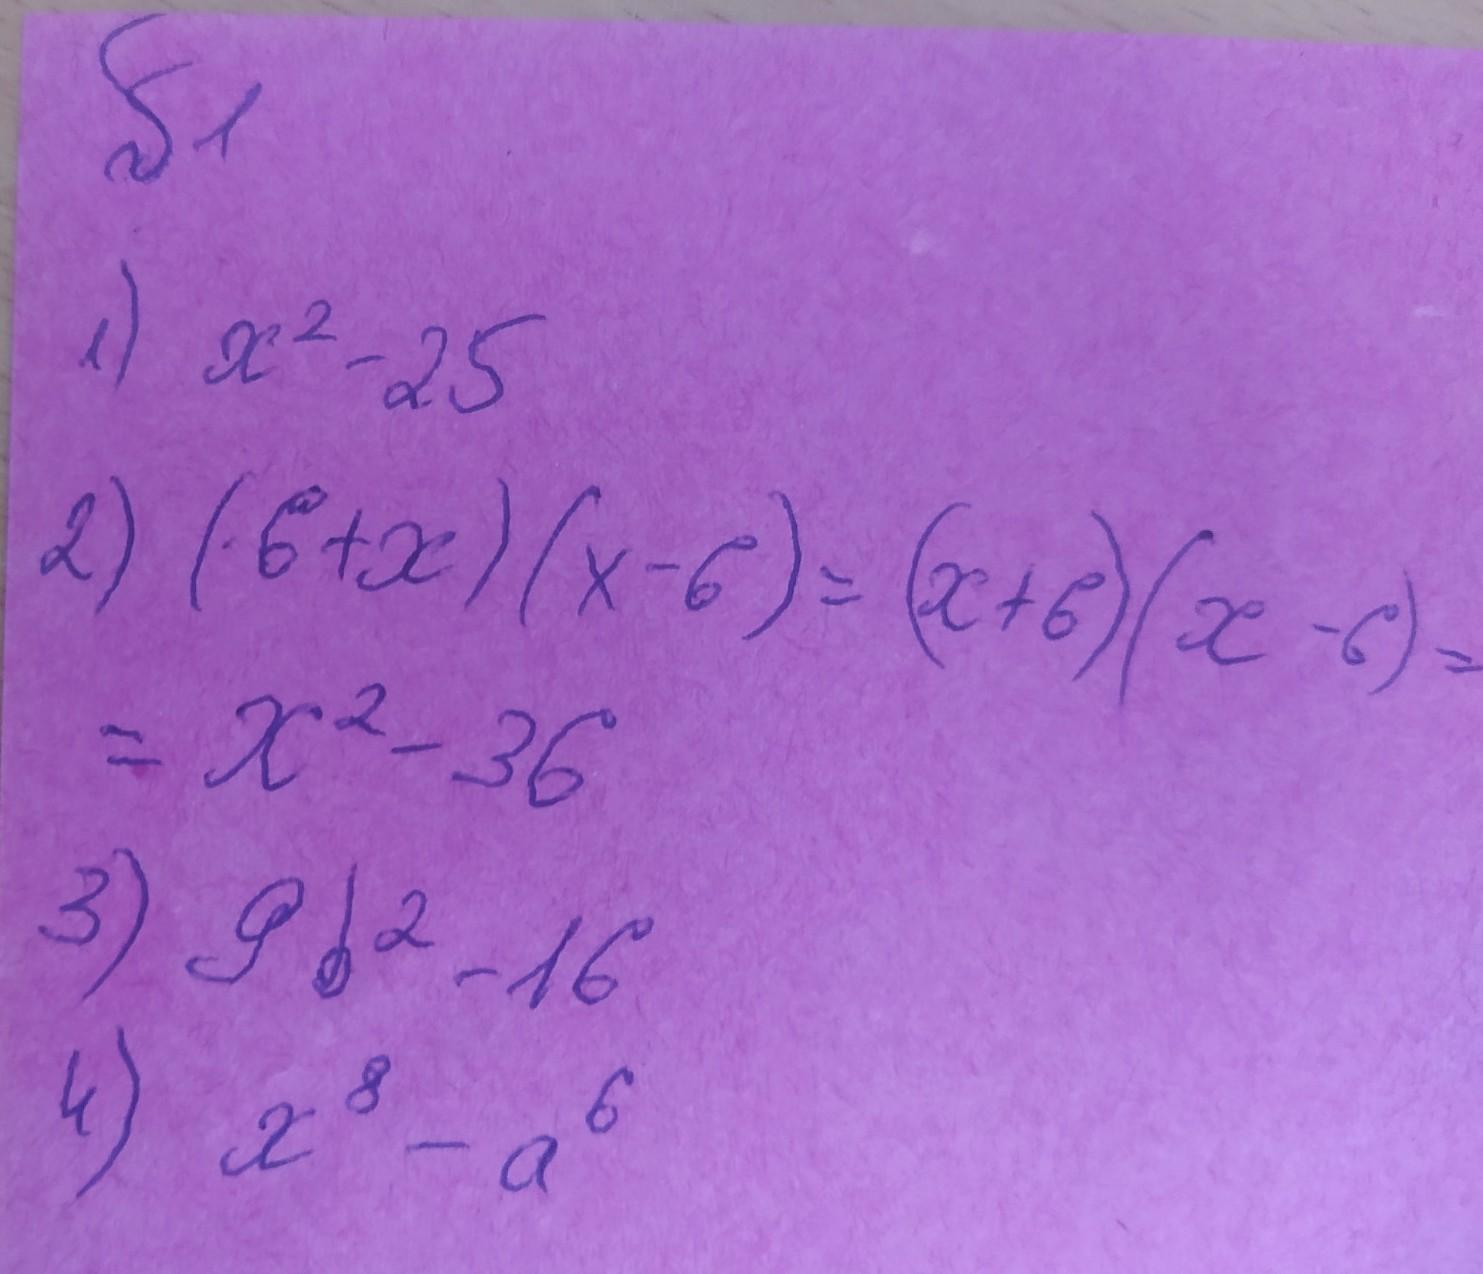 б1
1) x² - 25
2) (6+x)(x-6) = (x+6)(x-6) =
= x² - 36
3) 9b² - 16
4) x⁸ - a⁶